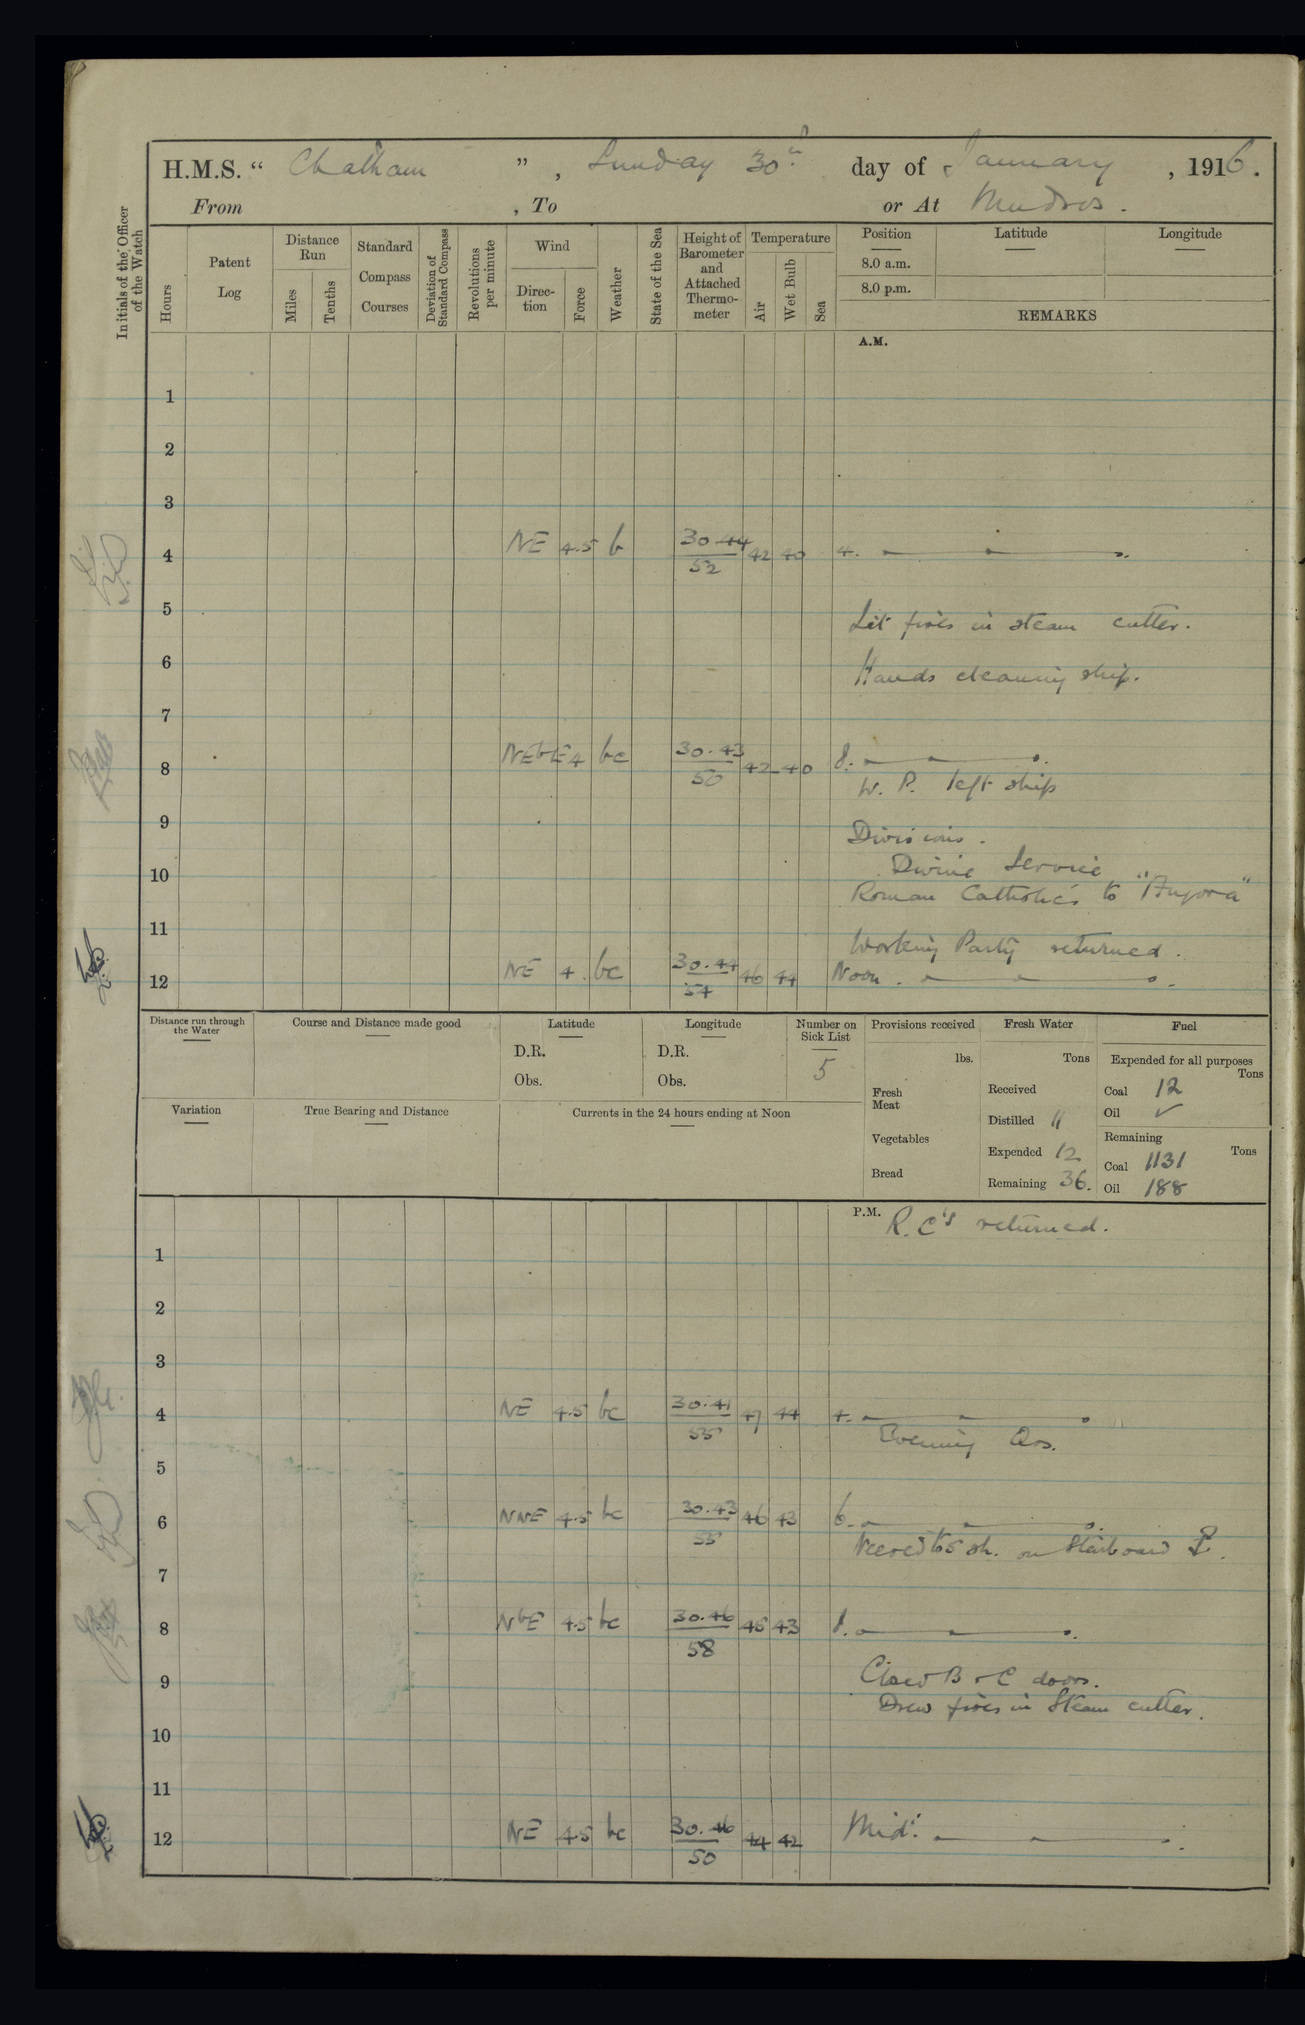 H.M.S. "Chatham", Sunday 30th day of January, 1916.
From , To or At Mudros.
Initials of the Officer of the Watch
Hours
Patent Log
Distance Run
Miles
Tenths
Standard Compass Courses
Deviation of Standard Compass
Revolutions per minute
Wind
Direction
Force
Weather
State of the Sea
Height of Barometer and Attached Thermometer
Temperature
Air
Wet Bulb
Sea
Position Latitude Longitude
8.0 a.m.
8.0 p.m.
REMARKS
A.M.
1
2
3
4 NE 4.5 b 30.44 / 52 42 40 4.
5 Lit fires in steam cutter.
6 Hands cleaning ship.
7
8 NEbE 4 bc 30.43 / 50 42 40 8.
W. P. left ship
9 Divisions.
10 Divine Service
Roman Catholics to "Angora"
11 Working Party returned.
12 NE 4. bc 30.44 / 54 46 44 Noon.
Distance run through the Water
Course and Distance made good
Latitude
D.R.
Obs.
Longitude
D.R.
Obs.
Number on Sick List
5
Provisions received
lbs.
Fresh Meat
Vegetables
Bread
Fresh Water
Tons
Received
Distilled 11
Expended 12
Remaining 36.
Fuel
Expended for all purposes
Tons
Coal 12
Oil ✓
Remaining
Tons
Coal 1131
Oil 188
Variation
True Bearing and Distance
Currents in the 24 hours ending at Noon
P.M. R.C's returned.
1
2
3
4 NE 4.5 bc 30.41 / 55 47 44 4.
Evening Qrs.
5
6 NNE 4.5 bc 30.43 / 55 46 43 6.
Veered to 5 sh. on Starboard
7
8 NbE 4.5 bc 30.46 / 58 45 43 8.
9 Closed B & C doors.
Drew fires in Steam cutter.
10
11
12 NE 4.5 bc 30.46 / 50 44 42 Midt.